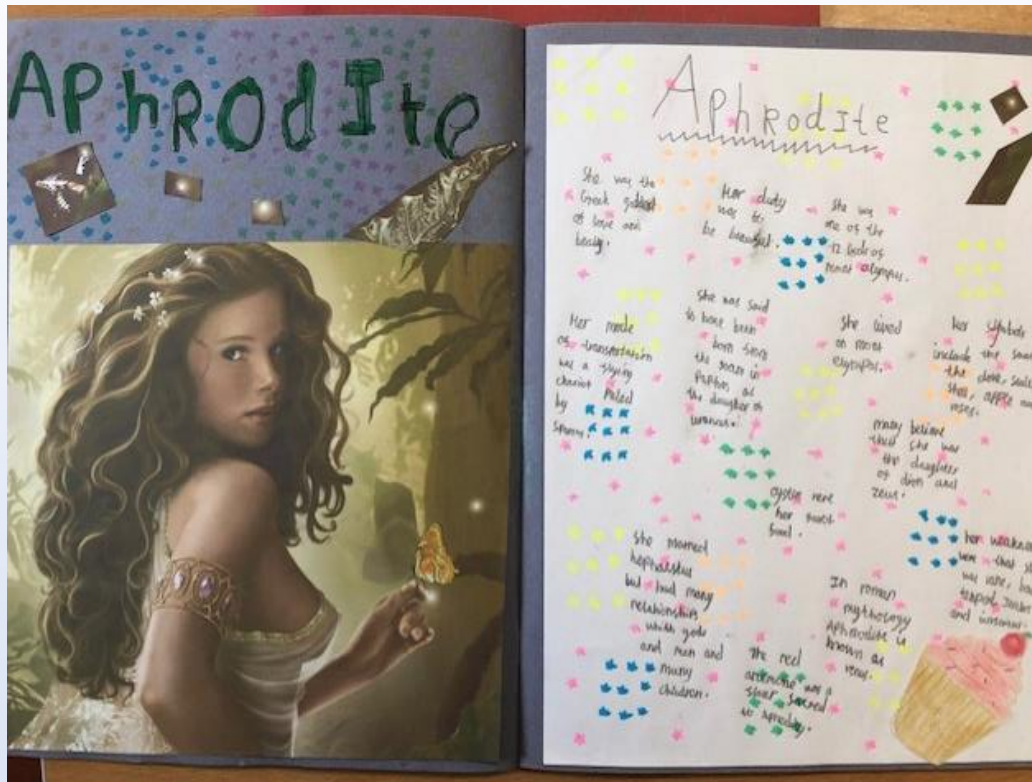 APhRodIte
APhRodIte
She was the
Greek goddest
of love and
beauty.
Her duty
was to
be beautiful.
She was
one of the
12 Gods of
mont olympus.
Her mode
of transportation
was a flying
chariot Puled
by
She was said
to have been
born from
the foam in
Paphos as
the daughter of
uranus.
She lived
on mont
olympus.
her
include the
the dove,
shell, apple and
roses.
many believe
that she was
the daughter
of dion and
zeus.
oyster were
her
She married
hephaestus
but had many
relationships
whith gods
and men and
many
children.
In roman
mythology
Aphrodite is
known as
venus.
her
were that she
was vane, bad
and
the red
anemone was a